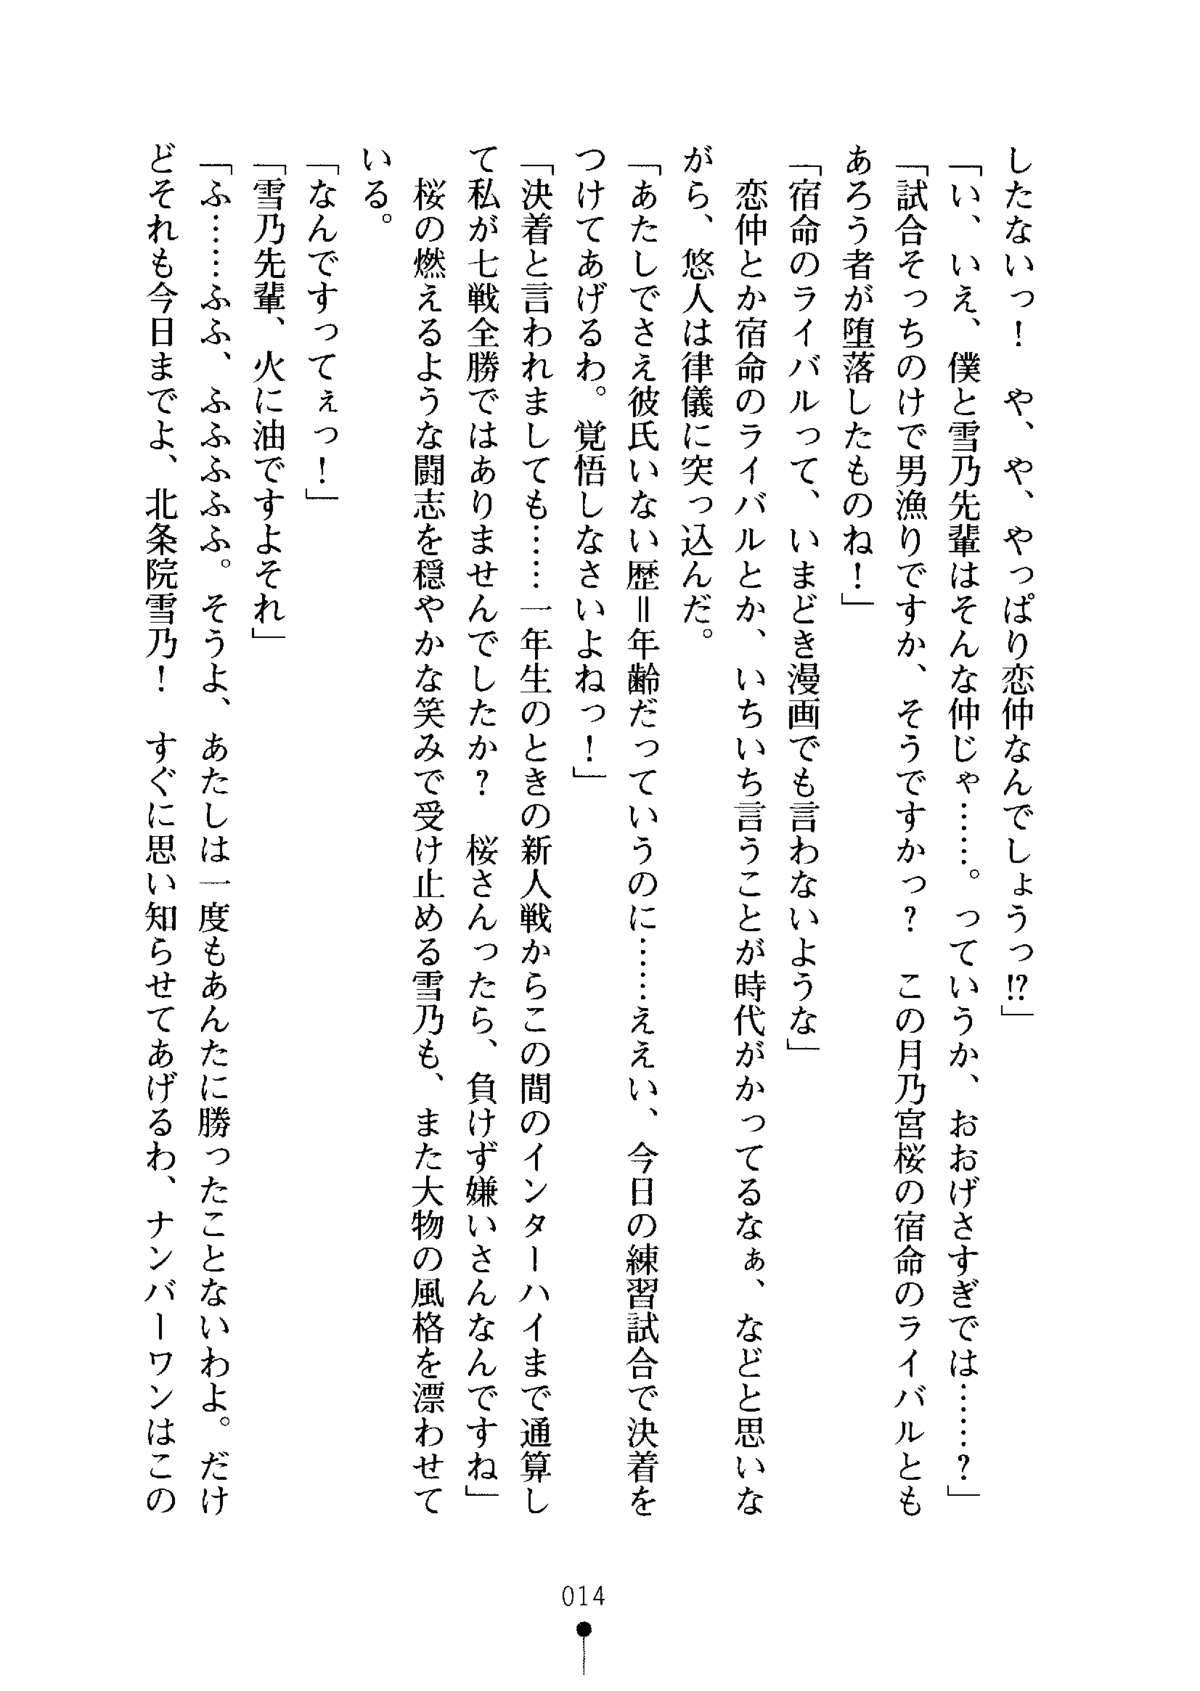 したないっ！　や、や、やっぱり恋仲なんでしょうっ!?」
「い、いえ、僕と雪乃先輩はそんな仲じゃ……。っていうか、おおげさすぎでは……？」
「試合そっちのけで男漁りですか、そうですかっ？　この月乃宮桜の宿命のライバルとも
あろう者が堕落したものね！」
「宿命のライバルって、いまどき漫画でも言わないような」
　恋仲とか宿命のライバルとか、いちいち言うことが時代がかってるなぁ、などと思いな
がら、悠人は律儀に突っ込んだ。
「あたしでさえ彼氏いない歴＝年齢だっていうのに……ええい、今日の練習試合で決着を
つけてあげるわ。覚悟しなさいよねっ！」
「決着と言われましても……一年生のときの新人戦からこの間のインターハイまで通算し
て私が七戦全勝ではありませんでしたか？　桜さんったら、負けず嫌いさんなんですね」
　桜の燃えるような闘志を穏やかな笑みで受け止める雪乃も、また大物の風格を漂わせて
いる。
「なんですってぇっ！」
「雪乃先輩、火に油ですよそれ」
「ふ……ふふ、ふふふふふ。そうよ、あたしは一度もあんたに勝ったことないわよ。だけ
どそれも今日までよ、北条院雪乃！　すぐに思い知らせてあげるわ、ナンバーワンはこの
014